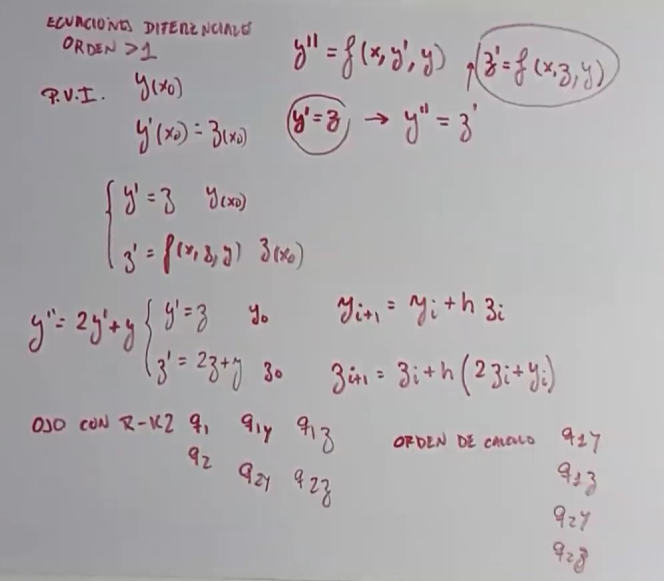 ECUACIONES DIFERENCIALES
ORDEN > 1
y'' = f(x, y', y) , z' = f(x, z, y)
P.V.I. y(x0)
y'(x0) = z(x0) y' = z → y'' = z'
y' = z y(x0)
z' = f(x, z, y) z(x0)
y'' = 2y' + y { y' = z y0 yi+1 = yi + h zi
z' = 2z + y z0 zi+1 = zi + h (2zi + yi)
OJO CON R-K2 q1 q1y q1z ORDEN DE CALCULO q1y
q2 q2y q2z q1z
q2y
q2z